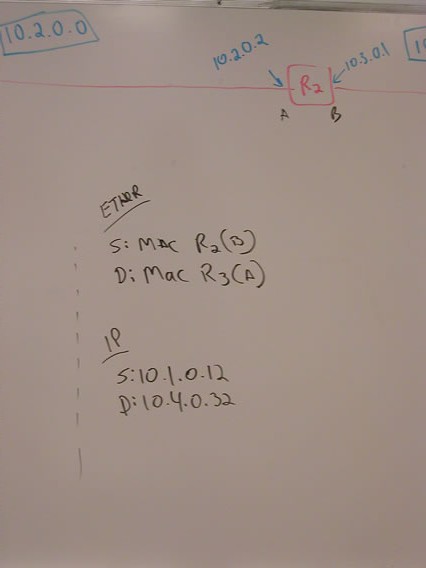 10.2.0.0
10.2.0.2
R2
10.3.0.1
A
B
ETHER
S: MAC R2(B)
D: Mac R3(A)
IP
S:10.1.0.12
D:10.4.0.32